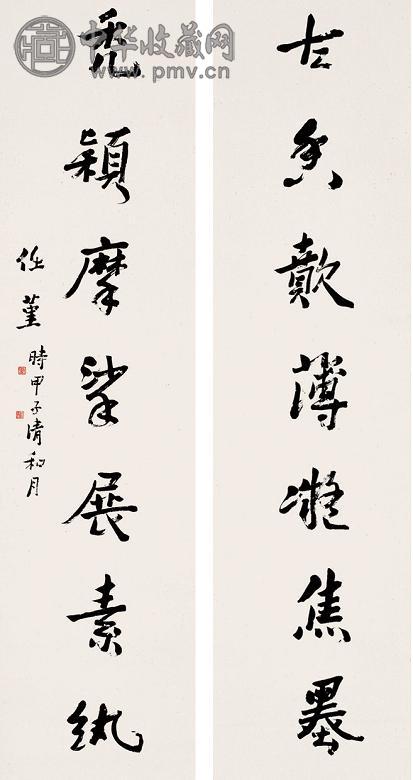 中华收藏网
www.pmv.cn
古香歕薄凝焦墨
禿穎摩挲展素紈
任堇
時甲子清和月